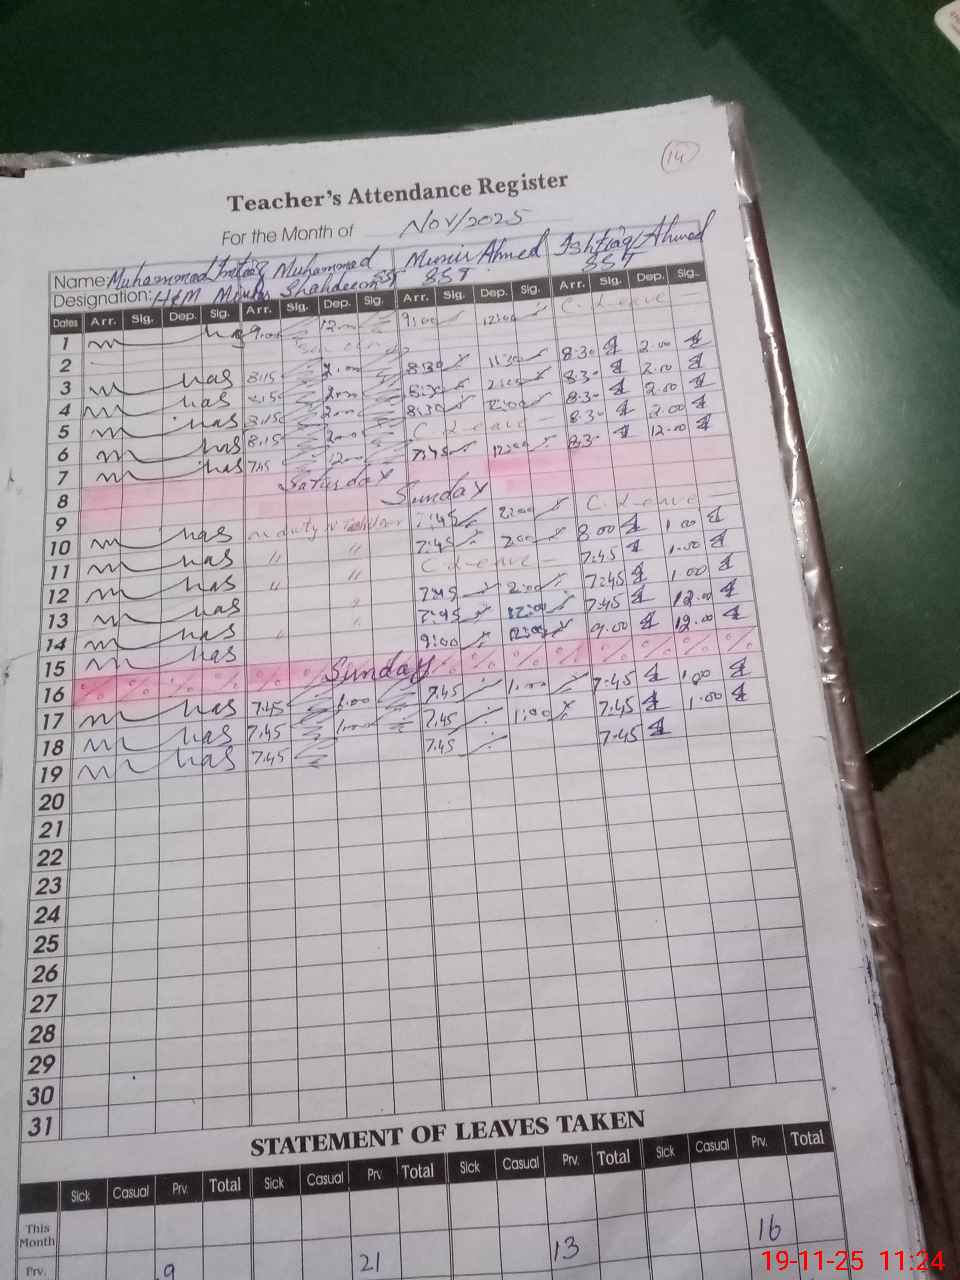 14
Teacher's Attendance Register
For the Month of Nov/2025
Name: Muhammad Muhammad Munir Ahmed Ishtiaq Ahmed
Designation: Shahdeen SST SST SST
Dates Arr. Sig. Dep. Sig. Arr. Sig. Dep. Sig. Arr. Sig. Dep. Sig. Arr. Sig. Dep. Sig.
1 has 9:00 12:00 9:00 12:00 C. Leave
2 Sunday
3 has 8:15 2:00 8:30 11:30 8:30 2.00
4 has 8:15 2:00 8:30 2:00 8:30 2.00
5 has 8:15 2:00 8:30 2:00 8:30 2.00
6 has 8:15 2:00 C. Leave 8:30 2.00
7 has 7:45 12:00 7:45 12:00 8:30 12.00
8 Saturday
9 Sunday
10 has on duty 7:45 2:00 C. Leave
11 has " " 7:45 2:00 8.00 1.00
12 has " " C. Leave 7:45 1.00
13 has 7:45 2:00 7:45 1.00
14 has 7:45 12:00 7:45 12.00
15 has 9:00 12:00 9.00 12.00
16 Sunday
17 has 7:45 1:00 7:45 1:00 7:45 1.00
18 has 7:45 1:00 7:45 1:00 7:45 1.00
19 has 7:45 7:45 7:45
20
21
22
23
24
25
26
27
28
29
30
31
STATEMENT OF LEAVES TAKEN
Sick Casual Prv. Total Sick Casual Prv. Total Sick Casual Prv. Total Sick Casual Prv. Total
This Month
Prv. 9 21 13 16
19-11-25 11:24